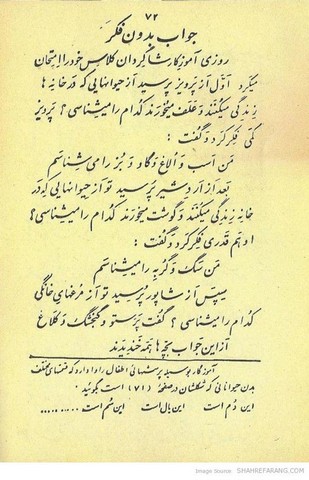 ۷۲
جواب بدون فکر
روزی آموزگار شاگردان کلاس خود را امتحان
میکرد اوّل از پرویز پرسید از حیوانهایی که در خانه ها
زندگی میکنند و علف میخورند کدام را میشناسی؟ پرویز
کمی فکر کرد و گفت :
من اسب و الاغ و گاو و بز را می شناسم
بعد از اردشیر پرسید تو از حیوانهایی که در
خانه زندگی میکنند و گوشت میخورند کدام را میشناسی؟
او هم قدری فکر کرد و گفت :
من سگ و گربه را میشناسم
سپس از شاپور پرسید تو از مرغهای خانگی
کدام را میشناسی؟ گفت پرستو و گنجشک و کلاغ
از این جواب بچه ها همه خندیدند
آموزگار بوسیله پرسشهائی اطفال را وادارد که قسمتهای مختلف
بدن حیواناتی که شکلشان در صفحهٔ (۷۱) است بگویند .
این دُم است این بال است این سُم است ..........
Image Source: SHAHREFARANG.COM